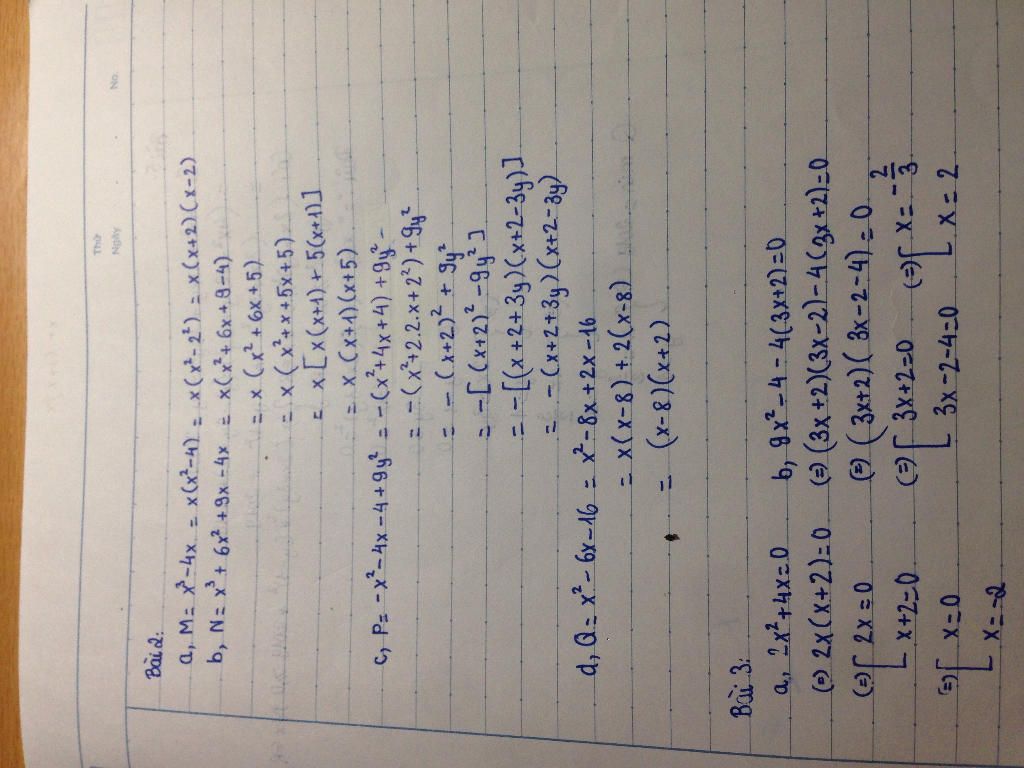 Thứ
Ngày
No.
Bài 2:
a, M = x³ - 4x = x(x² - 4) = x(x² - 2²) = x(x+2)(x-2)
b, N = x³ + 6x² + 9x - 4x = x(x² + 6x + 9 - 4)
= x(x² + 6x + 5)
= x(x² + x + 5x + 5)
= x[x(x+1) + 5(x+1)]
= x(x+1)(x+5)
c, P = -x² - 4x - 4 + 9y² = -(x² + 4x + 4) + 9y² -
= -(x² + 2.2.x + 2²) + 9y²
= -(x+2)² + 9y²
= -[(x+2)² - 9y²]
= -[(x+2+3y)(x+2-3y)]
= -(x+2+3y)(x+2-3y)
d, Q = x² - 6x - 16 = x² - 8x + 2x - 16
= x(x-8) + 2(x-8)
= (x-8)(x+2)
Bài 3:
a, 2x² + 4x = 0 b, 9x² - 4 - 4(3x+2) = 0
(=) 2x(x+2) = 0 (=) (3x+2)(3x-2) - 4(3x+2) = 0
(=) [ 2x = 0 (=) (3x+2)(3x-2-4) = 0
[ x+2 = 0 (=) [ 3x+2 = 0 (=) [ x = -2/3
(=) [ x = 0 [ 3x-2-4 = 0 [ x = 2
[ x = -2